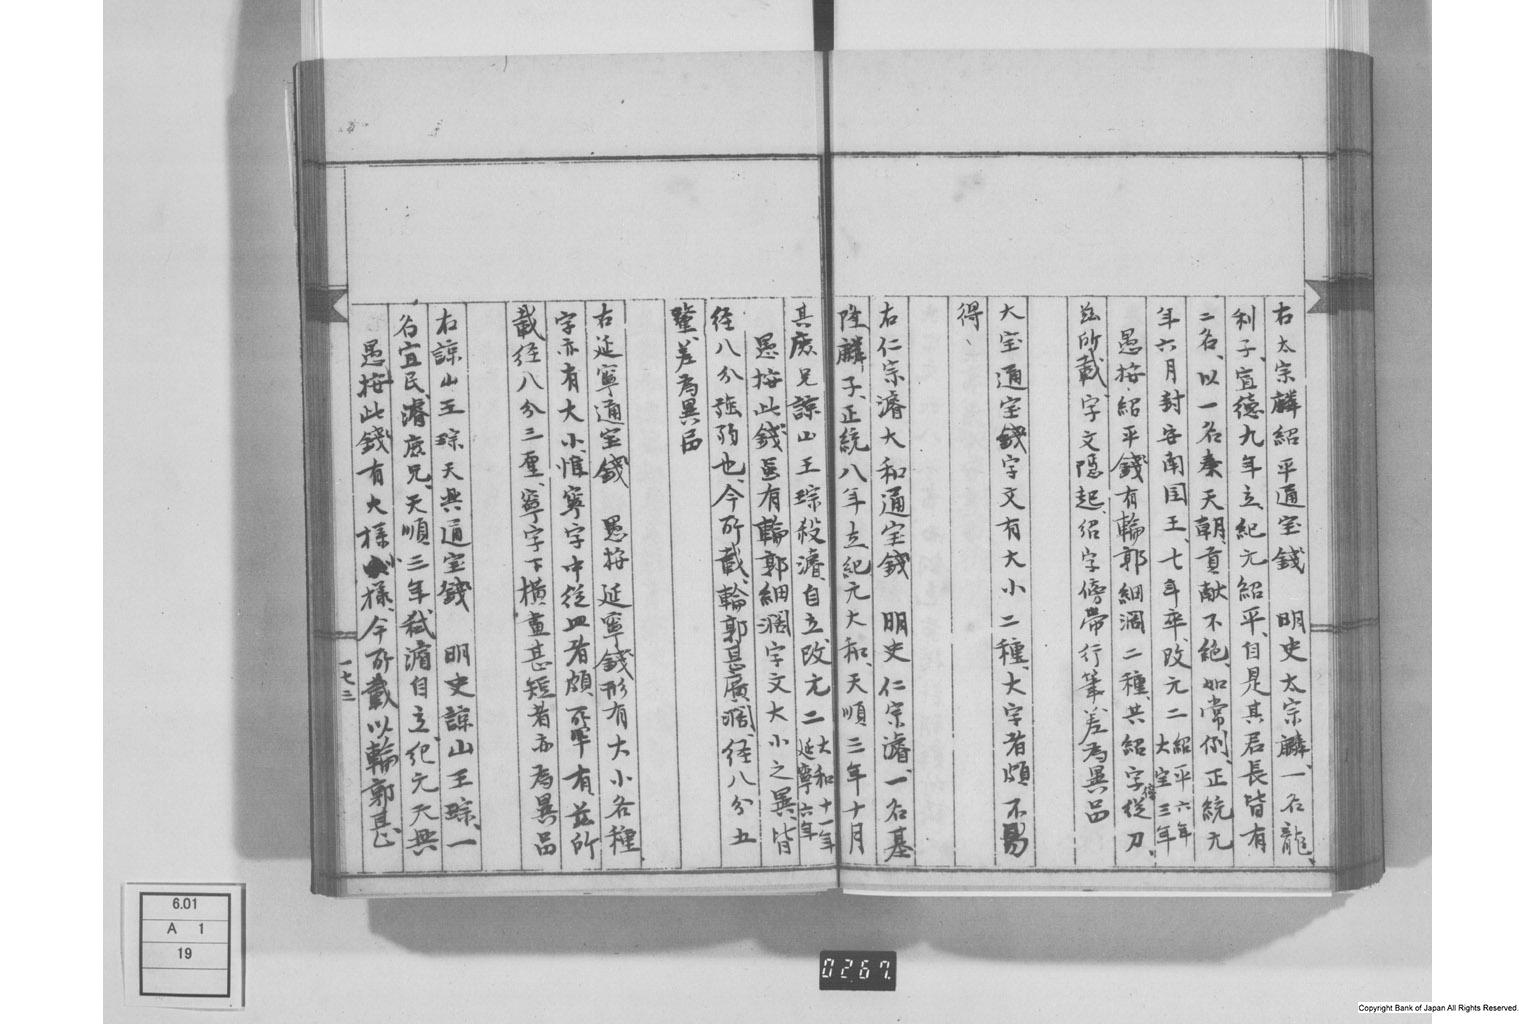 右太宗麟紹平通宝錢　明史太宗麟、一名龍、
利子、宣德九年立、紀元紹平、自是其君長皆有
二名、以一名奏天朝、貢献不絶、如常例、正統元
年六月封安南国王、七年卒、改元二紹平六年大宝三年
愚按紹平錢有輪郭細濶二種、共紹字傍從刀、
茲所載、字文隠起、紹字傍帶行筆、差為異品
大宝通宝錢字文有大小二種、大字者頗不易
得、
右仁宗濬大和通宝錢　明史仁宗濬、一名基
隆、麟子、正統八年立紀元大和、天順三年十月
其庶兄諒山王琮殺濬、自立、改元二大和十一年延寧六年
愚按此錢亘有輪郭細濶字文大小之異、皆
径八分強弱也、今所載、輪郭甚廣濶、径八分五
釐、差為異品
右延寧通宝錢　愚按延寧錢形有大小各種
字亦有大小、惟寧字中從皿者頗罕有、茲所
載径八分三厘、寧字下橫畫甚短者亦為異品
右諒山王琮天興通宝錢　明史諒山王琮、一
名宜民、濬庶兄、天順三年弑濬自立、紀元天興
愚按此錢有大様小様、今所載以輪郭甚
一七三
6.01
A 1
19
0267.
Copyright Bank of Japan All Rights Reserved.